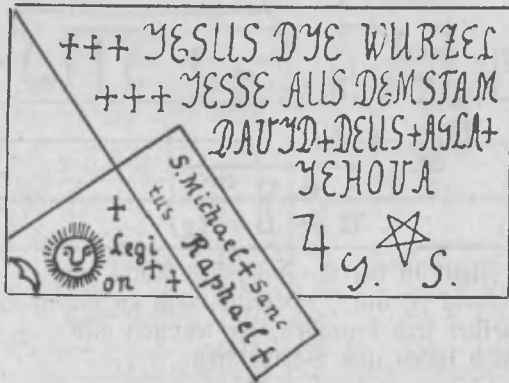 +++ JESUS DYE WURZEL
+++ JESSE AUS DEM STAM
DAVJD+DEUS+AGLA+
JEHOVA
S. Michael + Sanc
tus. Raphael +
+
Legi
++
on
♃ ⛤
S. S.